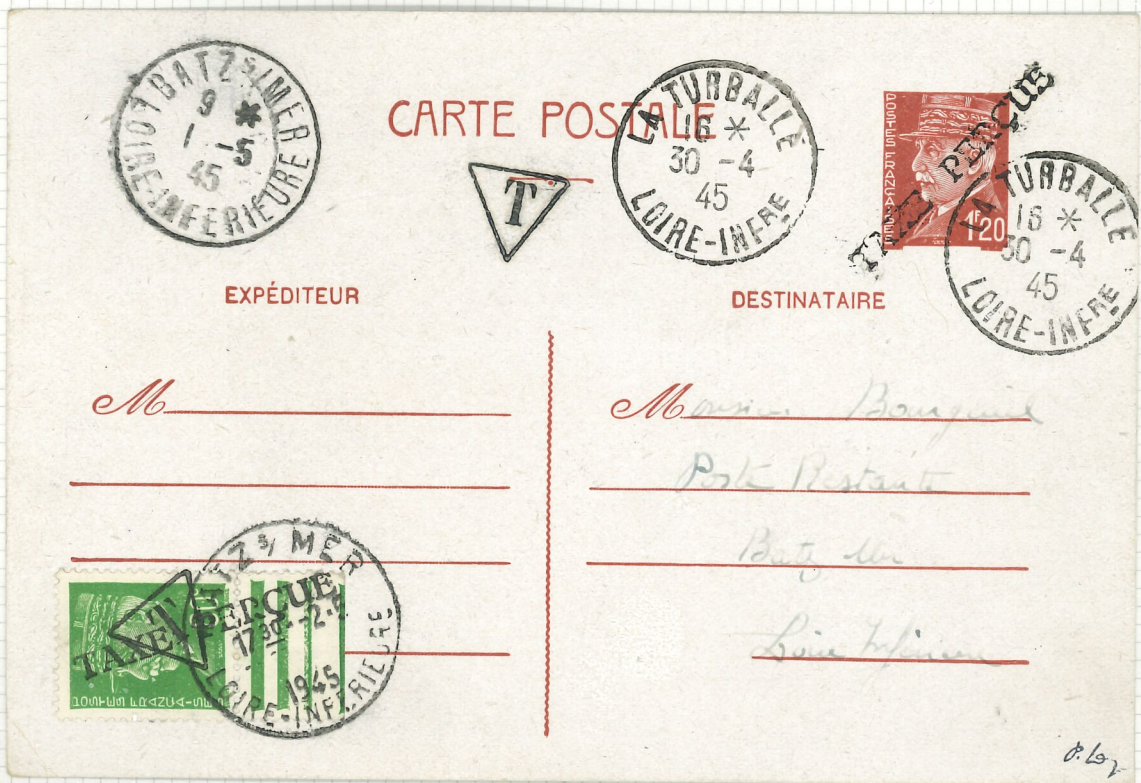 BATZ S/MER
9 *
1 -5
45
LOIRE-INFERIEURE
CARTE POSTALE
T
LA TURBALLE
16 *
30 -4
45
LOIRE-INFRE
POSTES FRANÇAISES
1F20
TAXE PERÇUE
LA TURBALLE
16 *
30 -4
45
LOIRE-INFRE
EXPÉDITEUR
DESTINATAIRE
M
Monsieur
Poste Restante
Batz Mer
Loire Inférieure
BATZ S/ MER
17 30
1945
LOIRE-INFERIEURE
T
TAXE PERCUE
POSTES FRANÇAISES